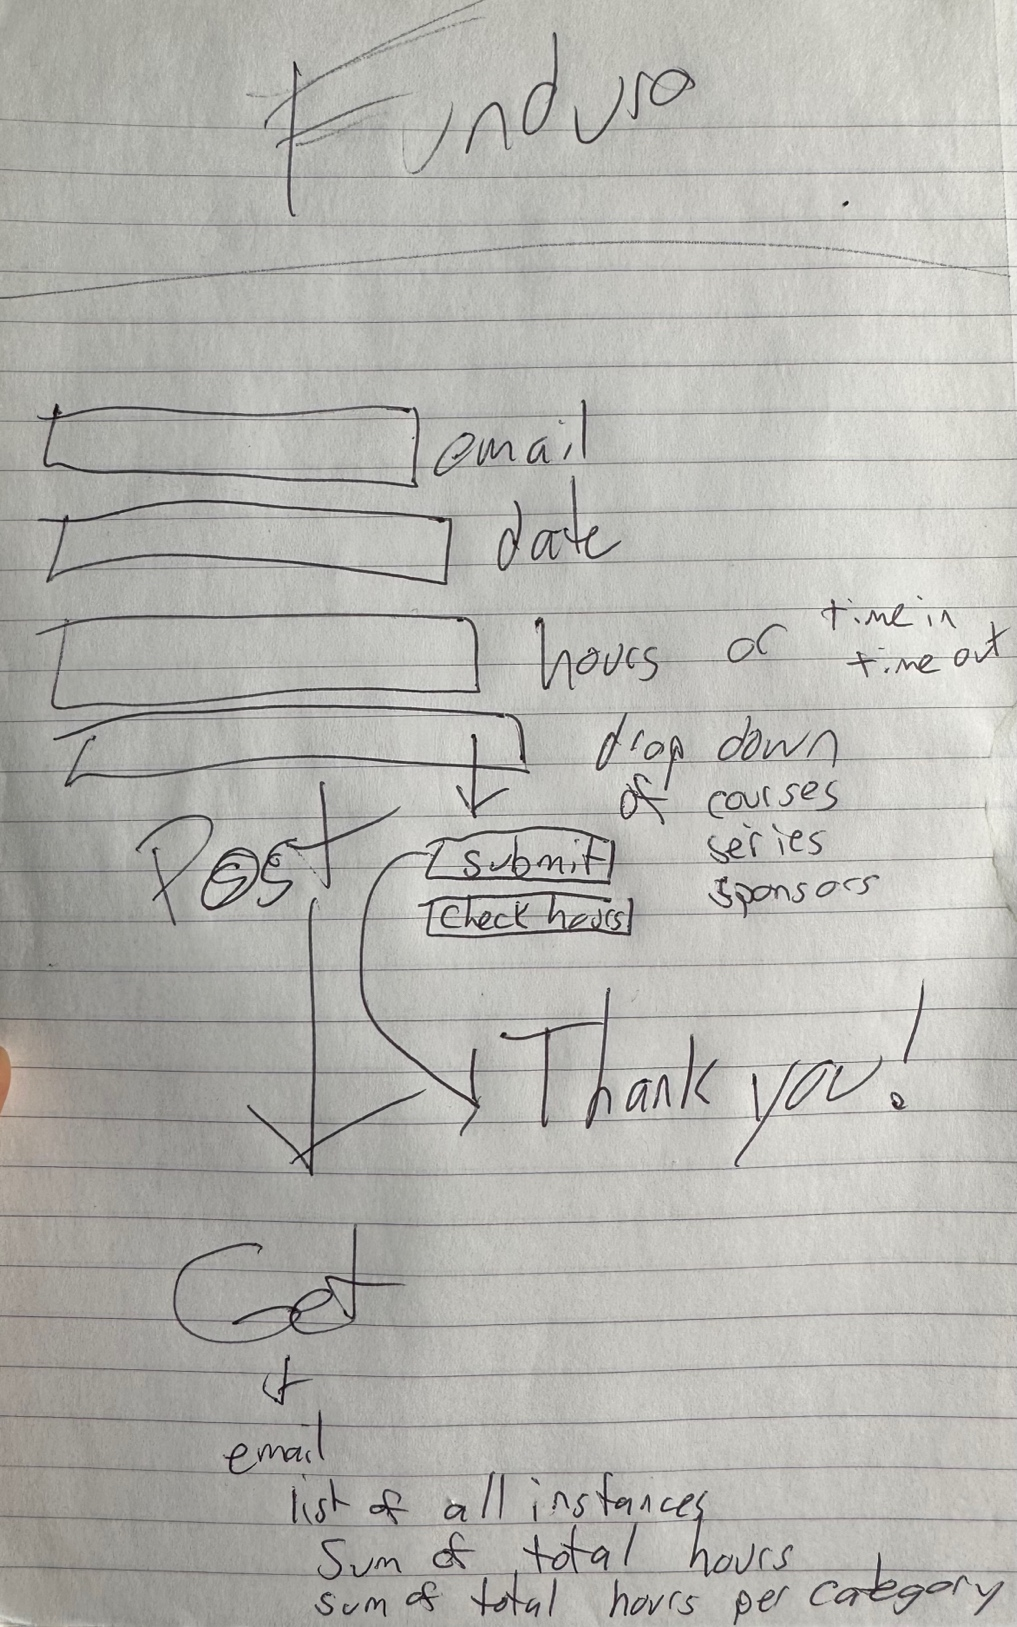 Funduro
email
date
hours or time in
time out
drop down
of courses
series
sponsors
Post
submit
check hours
Thank you!
Get
email
list of all instances
Sum of total hours
sum of total hours per category